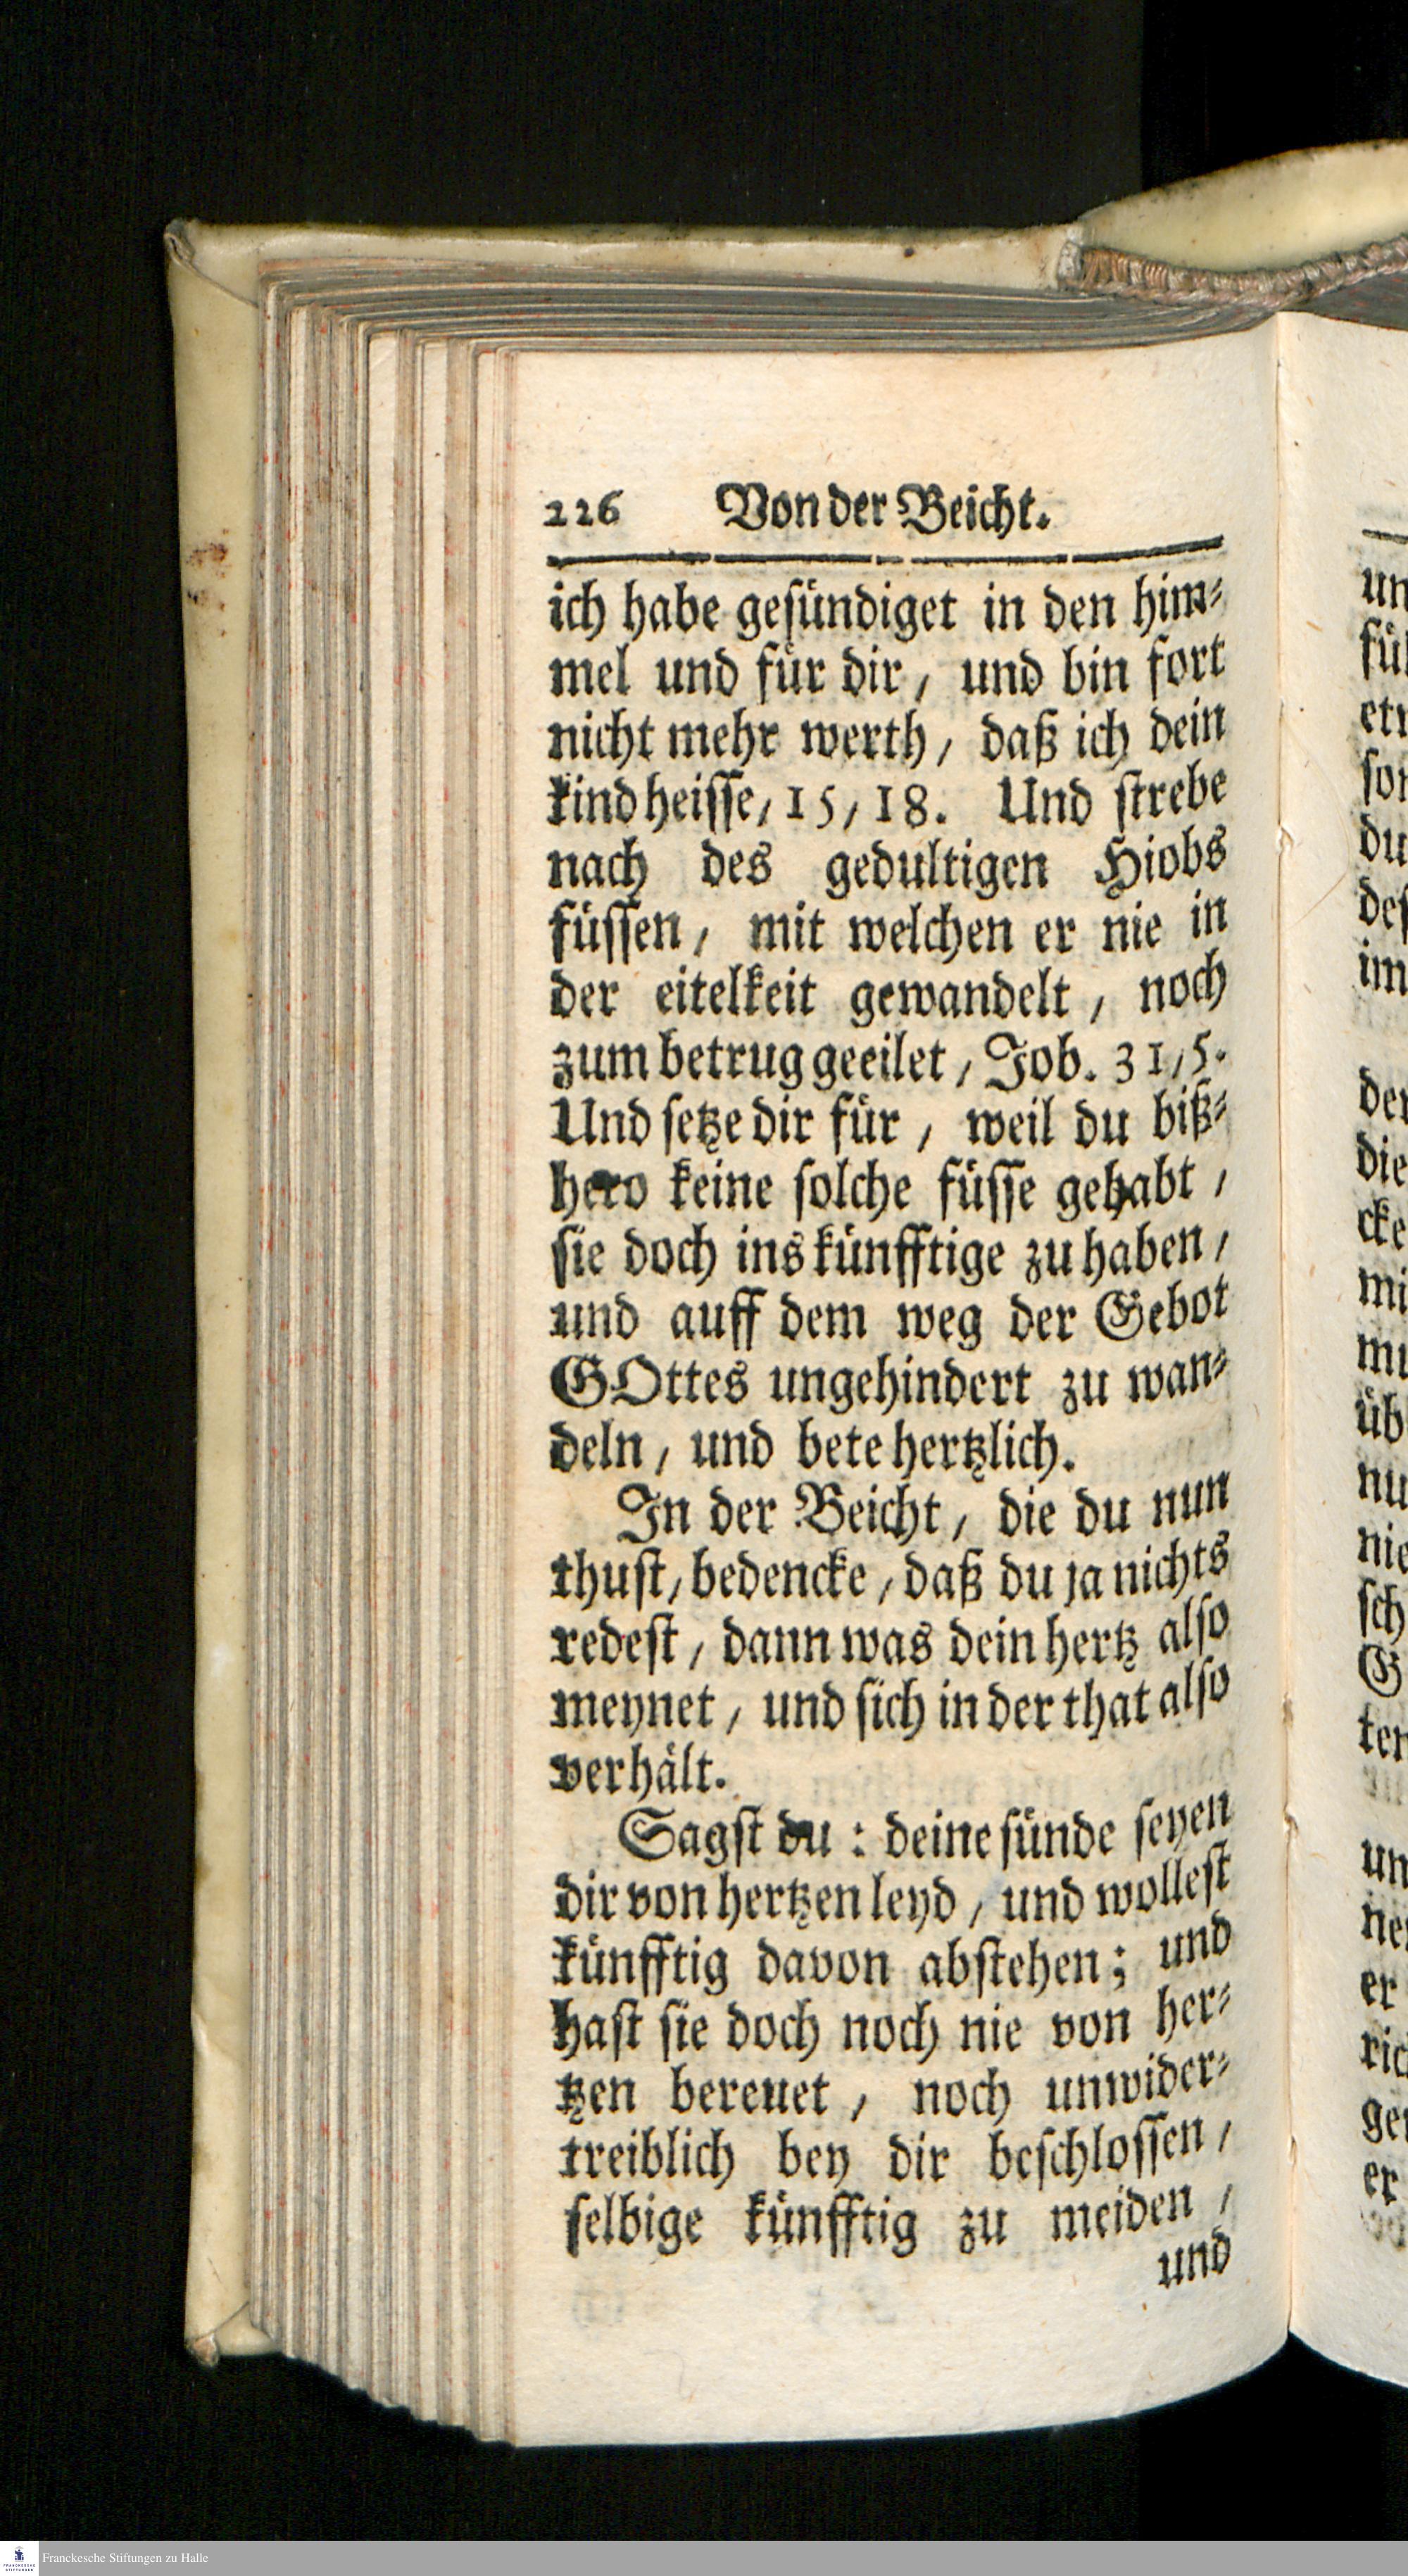 226 Von der Beicht.
ich habe gesündiget in den him⸗
mel und für dir / und bin fort
nicht mehr werth / daß ich dein
kind heisse / 15 / 18. Und strebe
nach des gedultigen Hiobs
füssen / mit welchen er nie in
der eitelkeit gewandelt / noch
zum betrug geeilet / Job. 31 / 5.
Und setze dir für / weil du biß⸗
hero keine solche füsse gehabt /
sie doch ins künfftige zu haben /
und auff dem weg der Gebot
GOttes ungehindert zu wan⸗
deln / und bete hertzlich.
In der Beicht / die du nun
thust / bedencke / daß du ja nichts
redest / dann was dein hertz also
meynet / und sich in der that also
verhält.
Sagst du : deine sünde seyen
dir von hertzen leyd / und wollest
künfftig davon abstehen; und
hast sie doch noch nie von her⸗
tzen bereuet / noch unwider⸗
treiblich bey dir beschlossen /
selbige künfftig zu meiden /
und
un
fü
et
so
du
des
im
der
die
cke
mi
mu
üb
nu
nie
sch
G
ten
un
ne
er
ric
ge
er
Franckesche Stiftungen zu Halle